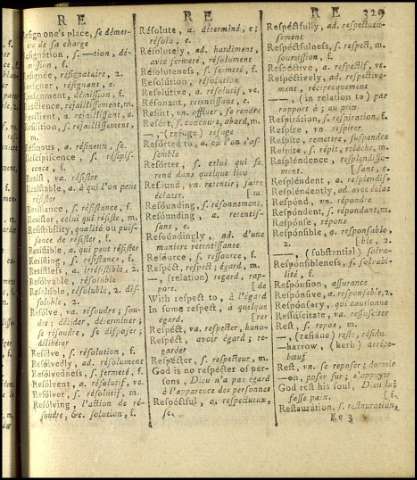 R E
R E
R E
329
Resign one's place, se démet-
tre de sa charge
Resignation, s. —tion, dé-
sion, f.
Resignée, résignataire, 2.
Resigner, résignant, e
Resignment, démission, f.
Resilience, rejaillissement, m.
Resilient, a. rejaillissant, e.
Resilition, s. rejaillissement,
m.
Resinous, a. résineux, se.
Resipiscence, s. résipis-
cence, f.
Resist, va. résister
Resistable, a. à qui l'on peut
résister
Resistance, s. résistance, f.
Resister, celui qui résiste, m.
Resistibility, qualité ou puis-
sance de résister, f.
Resistible, a. qui peut résister
Resisting, s. résistance, f.
Resistless, a. irrésistible, 2.
Resolvable, résoluble
Resoluble, résoluble, 2. dis-
soluble, 2.
Resolve, va. résoudre; sou-
dre; décider, déterminer;
se résoudre, se disposer;
délibérer
Resolve, s. résolution, f.
Resolvedly, ad. résolument
Resolvedness, s. fermeté, f.
Resolvent, a. résolutif, ve.
Resolver, s. résolutif, m.
Resolving, l'action de ré-
soudre, &c. solution, f.
Résolute, a. déterminé, e;
résolu, e.
Résolutely, ad. hardiment,
avec fermeté, résolument
Résoluteness, s. fermeté, f.
Resolution, résolution
Resolutive, a. résolutif, ve.
Resonant, retentissant, e.
Resort, vn. affluer, se rendre
Resort, s. concours, abord, m.
—, (refuge) refuge
Resorted to, a. où l'on s'as-
semble
Resorter, s. celui qui se
rend dans quelque lieu
Resound, vn. retentir, faire
éclater.
Resounding, s. résonnement,
Resounding, a. retentis-
sant, e.
Resoundingly, ad. d'une
maniere retentissante
Resource, s. ressource, f.
Respect, respect; égard, m.
—, (relation) regard, rap-
port.
With respect to, à l'égard
In some respect, à quelque
égard,
Respéct, va. respecter, hono-
Respéct, avoir égard; re-
garder
Respécter, s. respecteur, m.
God is no respecter of per-
sons, Dieu n'a pas égard
à l'apparence des personnes
Respéctful, a. respectueux,
se.
Respéctfully, ad. respectueu-
sement
Respéctfulness, s. respect, m.
soumission, f.
Respéctive, a. respectif, ve.
Respéctively, ad. respective-
ment, réciproquement
—, (in relation to) par
rapport à; au prix
Respiration, s. respiration, f.
Respire, vn. respirer
Respite, remettre, suspendre
Respite, s. répit, relâche, m.
Resplendence, resplendisse-
ment,
Resplendent, a. resplendis-
Resplendently, ad. avec éclat
Respond, vn. répondre
Respondent, s. répondant, m.
Response, réponse
Responsible, a. responsable,
2.
—, (substantial) solva-
Responsibleness, s. solvabi-
lité, f.
Responsion, assurance
Responsive, a. responsable, 2.
Responsary, qui cautionne
Ressuscitate, va. ressusciter
Rest, s. repos, m.
—, (remains) reste, résidu
—harrow, (herb) arrête-
bœuf
Rest, vn. se reposer; dormir
—on, poser sur; s'appuyer
God rest his soul, Dieu lui
fasse paix.
Restauration, s. restauration,
Ee 3